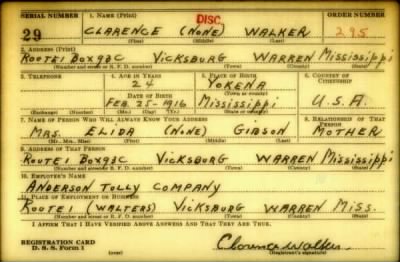 SERIAL NUMBER 1. NAME (Print) ORDER NUMBER
DISC.
29 CLARENCE (NONE) WALKER 295
(First) (Middle) (Last)
2. ADDRESS (Print)
ROUTE 1 BOX 93C VICKSBURG WARREN MISSISSIPPI
(Number and street or R. F. D. number) (Town) (County) (State)
3. TELEPHONE 4. AGE IN YEARS 5. PLACE OF BIRTH 6. COUNTRY OF CITIZENSHIP
24 YOKENA
DATE OF BIRTH (Town or county)
FEB. 25-1916 MISSISSIPPI U.S.A.
(Exchange) (Number) (Mo.) (Day) (Yr.) (State or country)
7. NAME OF PERSON WHO WILL ALWAYS KNOW YOUR ADDRESS 8. RELATIONSHIP OF THAT PERSON
MRS. ELIDA (NONE) GIBSON MOTHER
(Mr., Mrs., Miss) (First) (Middle) (Last)
9. ADDRESS OF THAT PERSON
ROUTE 1 BOX 93C VICKSBURG WARREN MISSISSIPPI
(Number and street or R. F. D. number) (Town) (County) (State)
10. EMPLOYER'S NAME
ANDERSON TULLY COMPANY
11. PLACE OF EMPLOYMENT OR BUSINESS
ROUTE 1 (WALTERS) VICKSBURG WARREN MISS.
(Number and street or R. F. D. number) (Town) (County) (State)
I AFFIRM THAT I HAVE VERIFIED ABOVE ANSWERS AND THAT THEY ARE TRUE.
REGISTRATION CARD
D. S. S. Form 1 (over) Clarence Walker
(Registrant's signature)